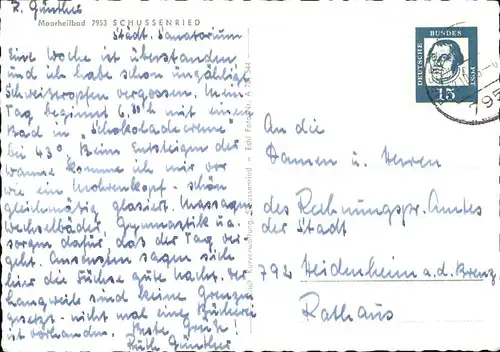 R. Günther
Moorheilbad 7953 SCHUSSENRIED
Städt. Sanatorium
Eine Woche ist überstanden
und ich habe schon unzählige
Schweißtropfen vergossen. Mein
Tag beginnt 6,30 h mit einem
Bad in "Schokoladecreme"
bei 43°. Beim Entsteigen der
Wanne komme ich mir vor
wie ein Mohrenkopf - schön
gleichmäßig glasiert. Massagen
Wechselbäder, Gymnastik u.a.
sorgen dafür, daß der Tag ver-
geht. Ansonsten sagen sich
hier die Füchse gute Nacht. Der
Langweile sind keine Grenzen
gesetzt - nicht mal eine Bücherei
ist vorhanden. Beste Grüße!
Ruth Günther
DEUTSCHE BUNDESPOST
15
An die
Damen u. Herren
des Rechnungspr. Amtes
der Stadt
792 Heidenheim a. d. Brenz
Rathaus